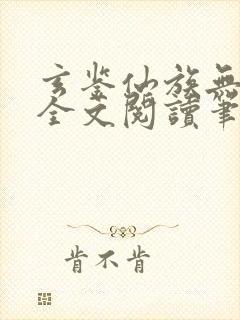 玄鉴仙族無
全文閱讀筆
肯不肯